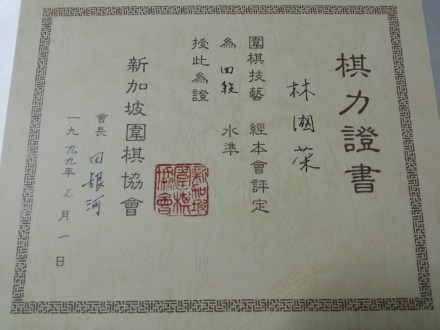 棋力證書
林國榮
圍棋技藝 經本會評定
為 四段 水準
授此為證
新加坡圍棋協會
新加坡圍棋協會
會長 田銀河
一九九九年 月一日